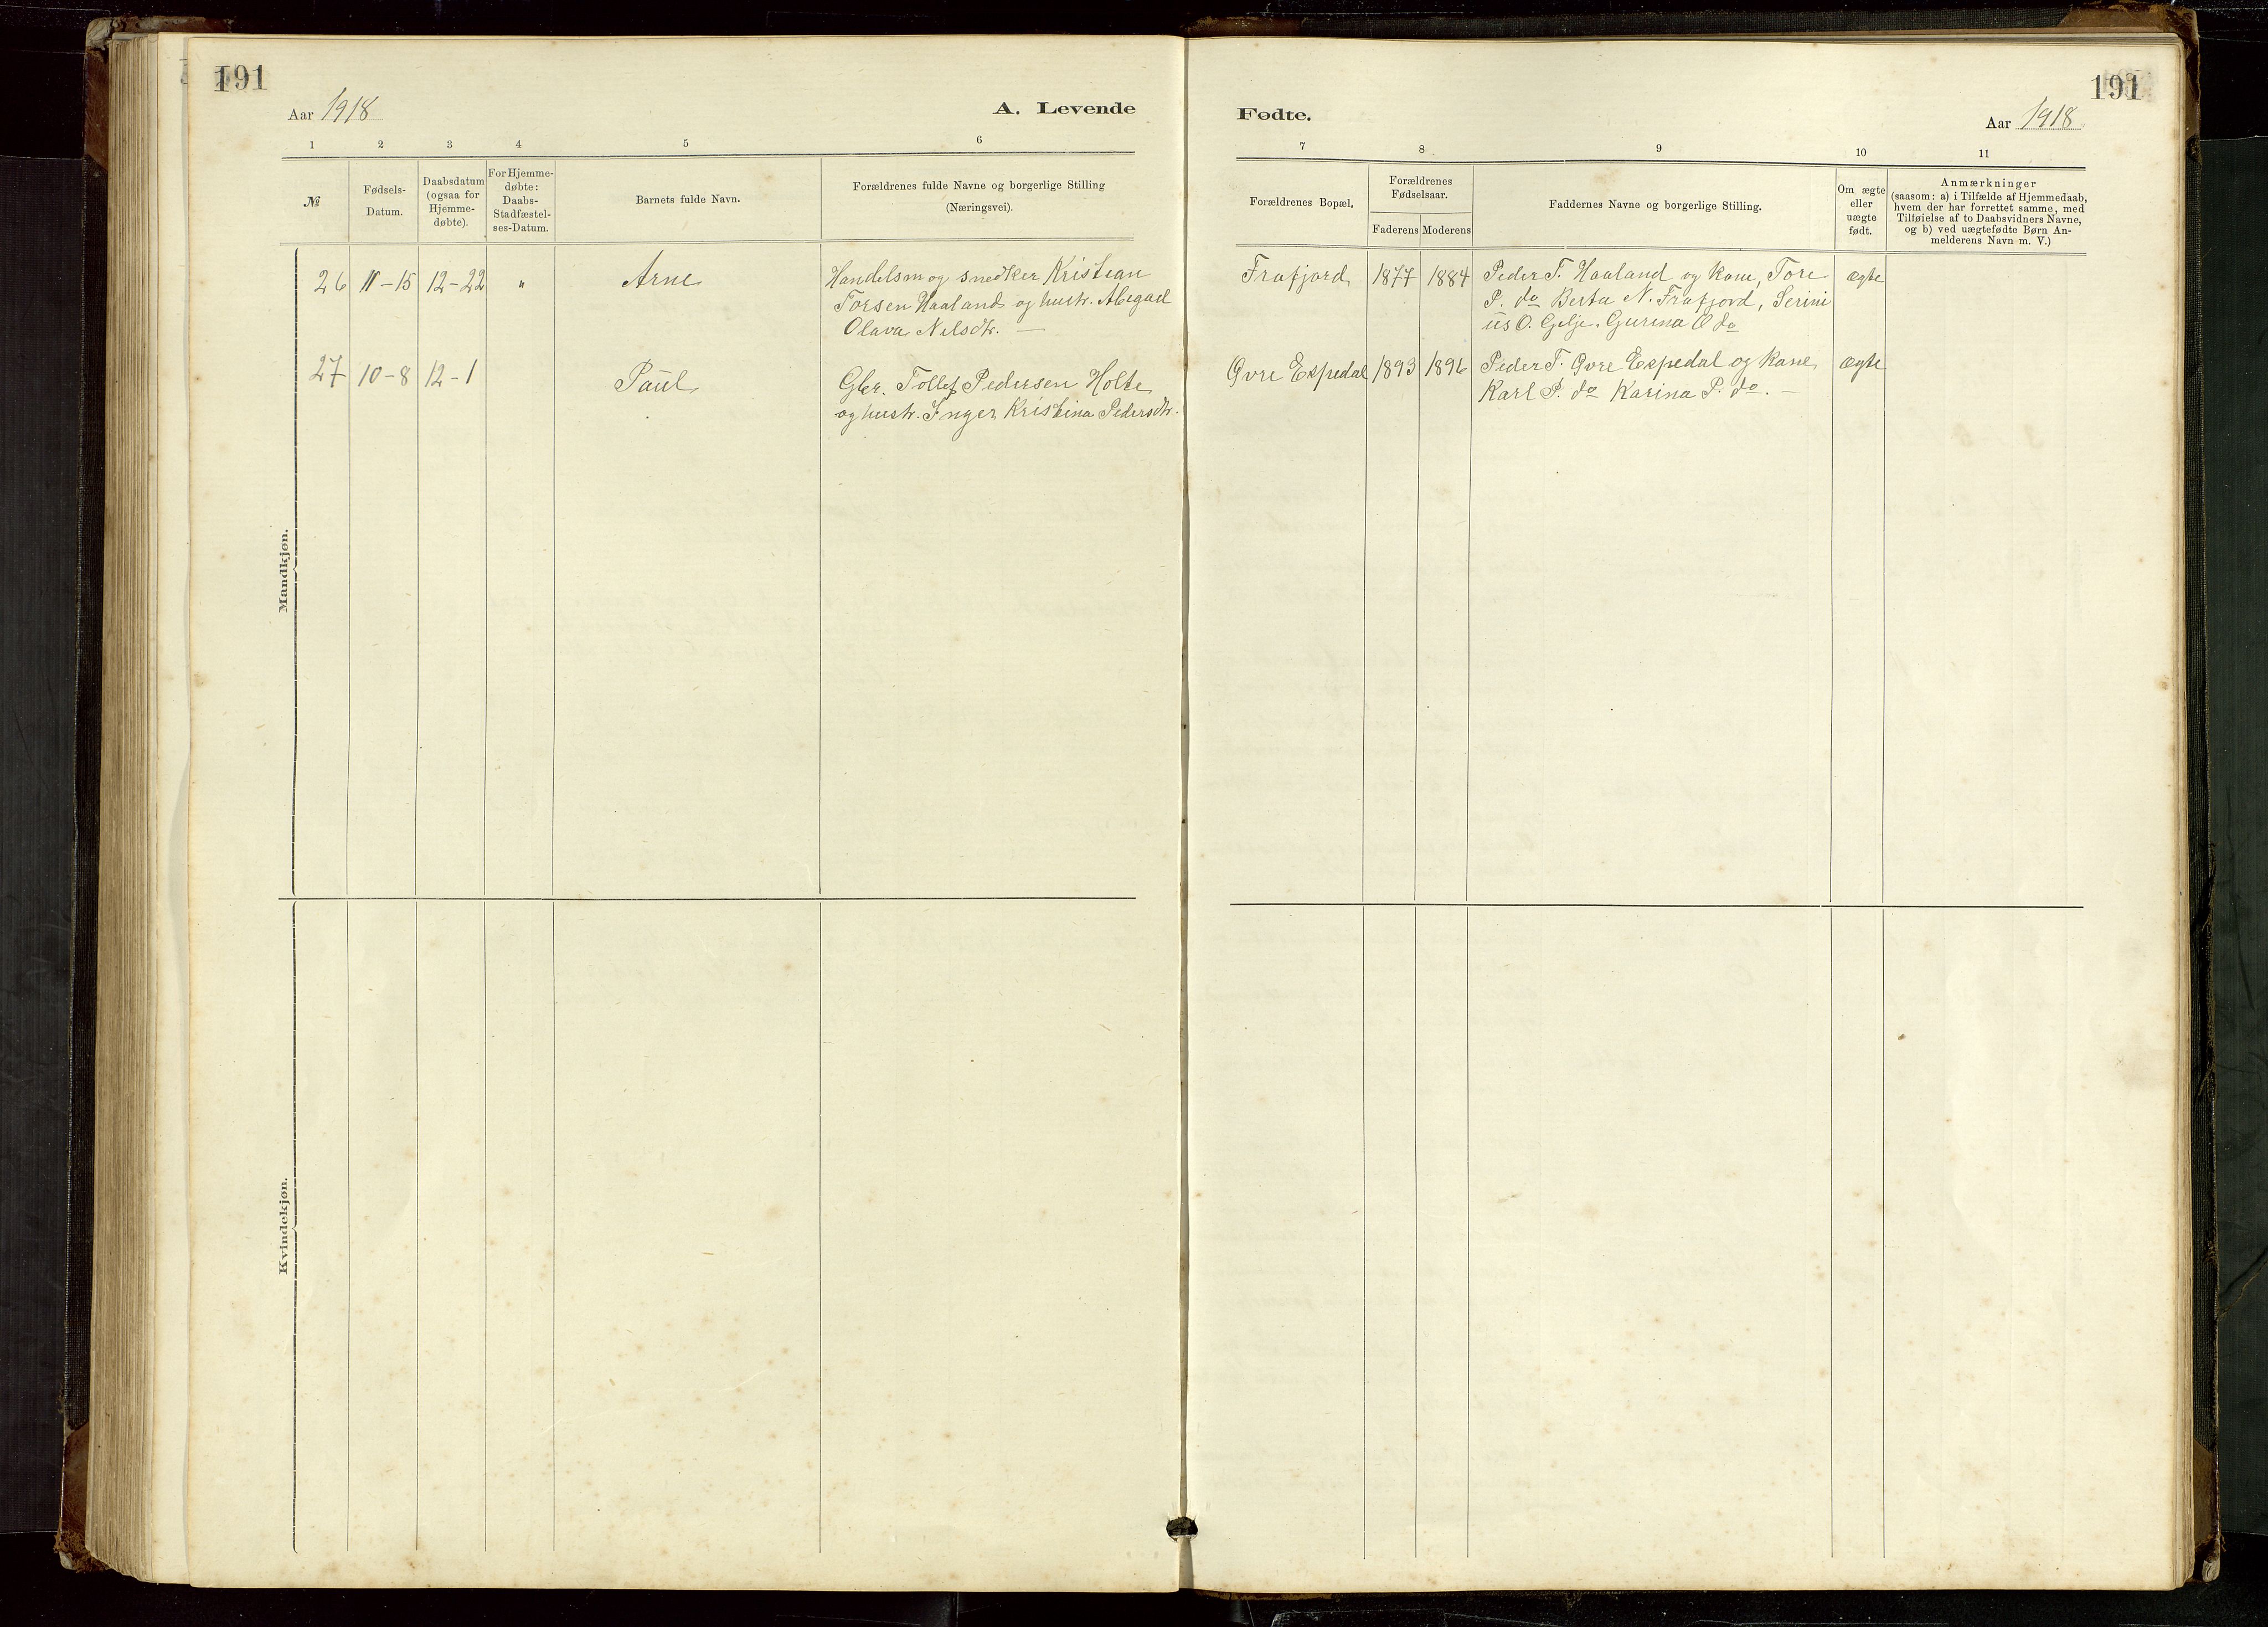 191
Aar 1918
A. Levende
1 2 3 4 5 6
№
Fødsels-
Datum.
Daabsdatum
(ogsaa for
Hjemme-
døbte).
For Hjemme-
døbte:
Daabs-
Stadfæstel-
ses-Datum.
Barnets fulde Navn.
Forældrenes fulde Navne og borgerlige Stilling
(Næringsvei).
Mandkjøn.
26 11-15 12-22 " Arne
Handelsm og snedker Kristian
Torsen Haaland og hustr. Abigael
Olava Nilsdtr. —
27 10-8 12-1 Paul
Gbr. Tollef Pedersen Holte
og hustr. Inger Kristina Pedersdtr.
Kvindekjøn.
Fødte.
191
Aar 1918
7 8 9 10 11
Forældrenes Bopæl.
Forældrenes
Fødselsaar.
Faderens Moderens
Faddernes Navne og borgerlige Stilling.
Om ægte
eller
uægte
født.
Anmærkninger
(saasom: a) i Tilfælde af Hjemmedaab,
hvem der har forrettet samme, med
Tilføielse af to Daabsvidners Navne,
og b) ved uægtefødte Børn An-
melderens Navn m. V.)
Frafjord 1877 1884 Peder T. Haaland og kone, Tore ægte
P. do Berta N. Frafjord, Serini
us O. Gilje, Gurina O do
Øvre Espedal 1893 1896 Peder T. Øvre Espedal og kone ægte
Karl P. do Karina P. do. —